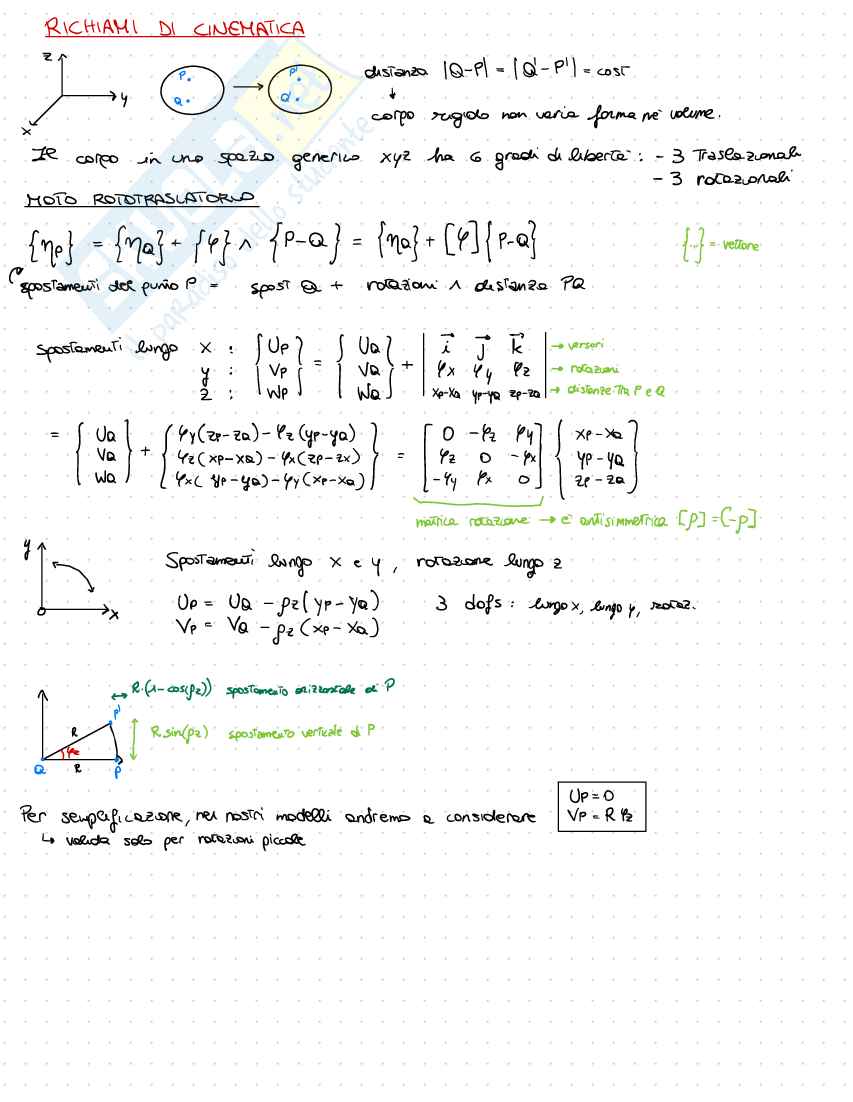 RICHIAMI DI CINEMATICA
z
y
x
P
Q
P'
Q'
distanza |Q-P| = |Q'-P'| = cost
↓
corpo rigido non varia forma nè volume.
Il corpo in uno spazio generico xyz ha 6 gradi di libertà: - 3 Traslazionali
- 3 rotazionali
MOTO ROTOTRASLATORIO
{ηP} = {ηQ} + {φ} ∧ {P-Q} = {ηQ} + [φ]{P-Q}
{...} = vettore
spostamenti del punto P = spost Q + rotazioni ∧ distanza PQ
spostamenti lungo x : {UP} = {UQ} + | i j k | → versori
y : {VP} {VQ} | φx φy φz | → rotazioni
z : {WP} {WQ} | xP-xQ yP-yQ zP-zQ | → distanze tra P e Q
= {UQ} + {φy(zP-zQ) - φz(yP-yQ)} = [0 -φz φy] {xP-xQ}
{VQ} {φz(xP-xQ) - φx(zP-zx)} [φz 0 -φx] {yP-yQ}
{WQ} {φx(yP-yQ) - φy(xP-xQ)} [-φy φx 0] {zP-zQ}
matrice rotazione → è antisimmetrica [ρ] = [-ρ]
y
O
x
Spostamenti lungo x e y, rotazione lungo z
UP = UQ - ρz(yP-yQ) 3 dofs: lungo x, lungo y, rotaz.
VP = VQ - ρz(xP-xQ)
↔ R·(1-cos(ρz)) spostamento orizzontale di P
P'
R
R sin(ρz) spostamento verticale di P
φz
Q
R
P
Per semplificazione, nei nostri modelli andremo a considerare
UP = 0
VP = R φz
↳ valida solo per rotazioni piccole